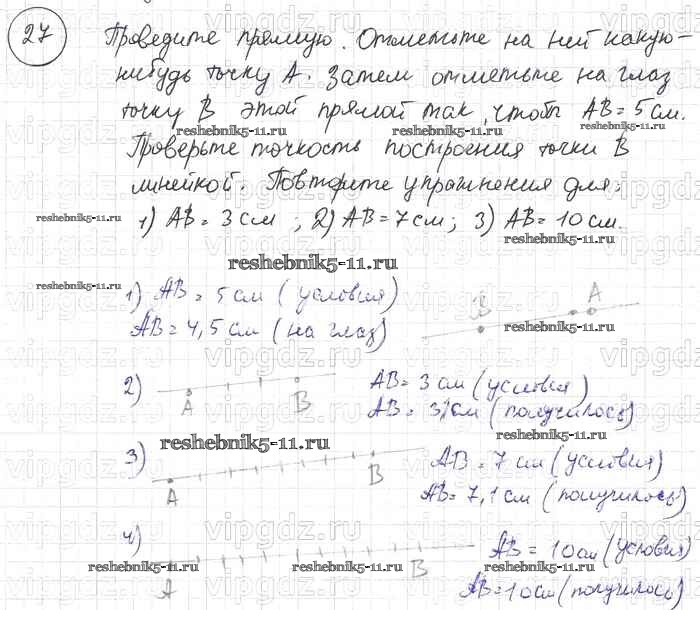 27
Проведите прямую. Отметьте на ней какую-
нибудь точку А. Затем отметьте на глаз
точку В этой прямой так, чтобы АВ = 5 см.
Проверьте точность построения точки В
линейкой. Повторите упражнения для:
1) АВ = 3 см ; 2) АВ = 7 см ; 3) АВ = 10 см.
reshebnik5-11.ru
1) АВ = 5 см ( условия )
АВ = 4,5 см ( на глаз )
В А
2)
А В
АВ = 3 см ( условия )
АВ = 3,1 см ( получилось )
3)
А В
АВ = 7 см ( условия )
АВ = 7,1 см ( получилось )
4)
А В
АВ = 10 см ( условия )
АВ = 10 см ( получилось )
vipgdz.ru